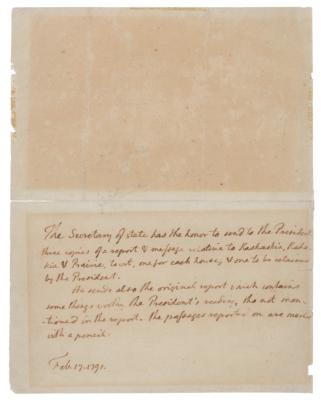 The Secretary of state has the honor to send to the President
three copies of a report & message relative to Kaskaskia, Kaho-
kia & Prairie, towit, one for each house, & one to be retained
by the President.
He sends also the original report which contains
some things worthy the President's reading, tho not men-
tioned in the report. the passages reported on are marked
with a pencil.
Feb. 17. 1791.